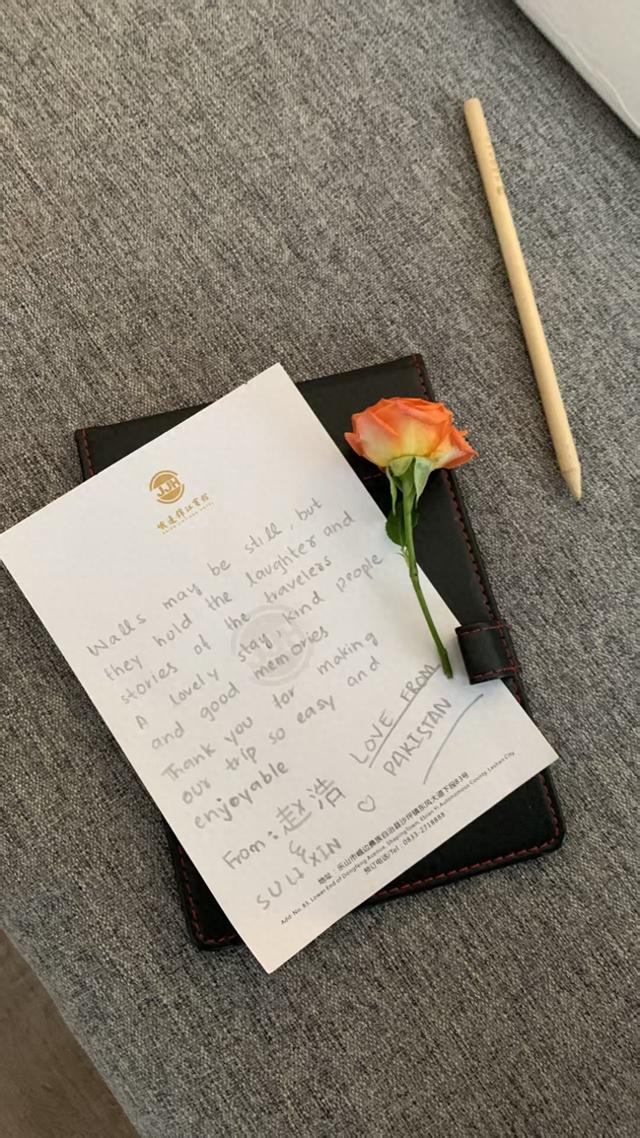 JJH
峨边锦江宾馆
Walls may be still, but
they hold the laughter and
stories of the travelers
A lovely stay, kind people
and good memories
Thank you for making
our trip so easy and
enjoyable
From: 赵浩
&
SULI XIN
LOVE FROM
PAKISTAN
地址：乐山市峨边彝族自治县沙坪镇东风大道下段83号
Add: No. 83, Lower End of Dongfeng Avenue, Shaping Town, Ebian Yi Autonomous County, Leshan City
预订电话/Tel: 0833-2718888